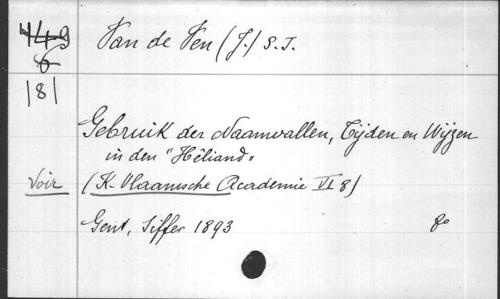 449
6
Van de Ven (J.) S.J.
181
Gebruik der Naamvallen, Tijden en Wijzen
in den "Hêliand"
Voir (K. Vlaamsche Academie VI 8)
Gent, Siffer 1893 8°